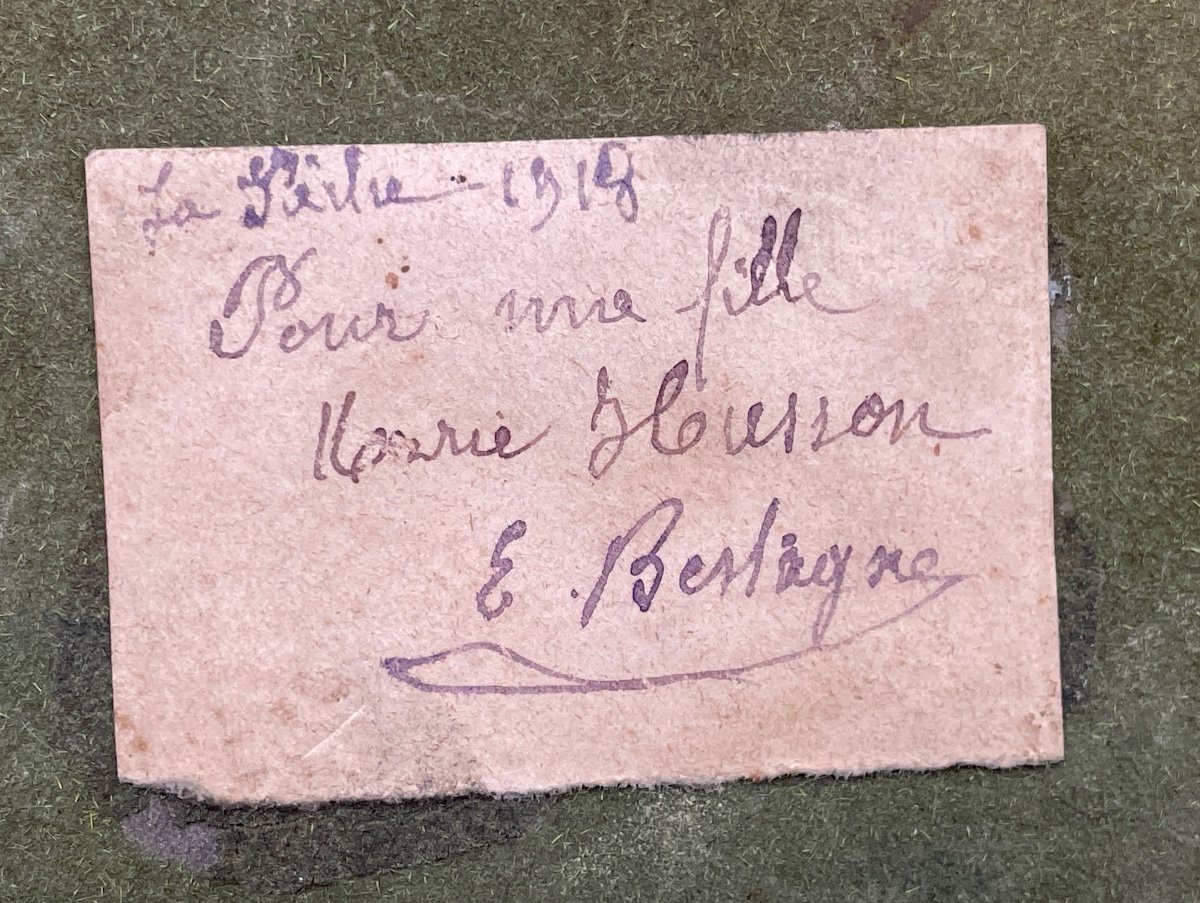 La Pêche - 1918
Pour ma fille
Marie Husson
E. Bestagne